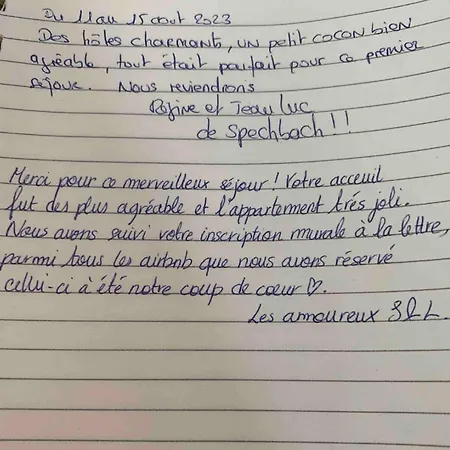 Du 11 au 15 aout 2023
Des hôtes charmants, un petit cocon bien
agréable, tout était parfait pour ce premier
séjour. Nous reviendrons
Régine et Jean Luc
de Spechbach !!
Merci pour ce merveilleux séjour ! Votre acceuil
fut des plus agréable et l'appartement trés joli.
Nous avons suivi votre inscription murale à la lettre,
parmi tous les airbnb que nous avons réservé
cellui-ci à été notre coup de coeur ♡.
Les amoureux